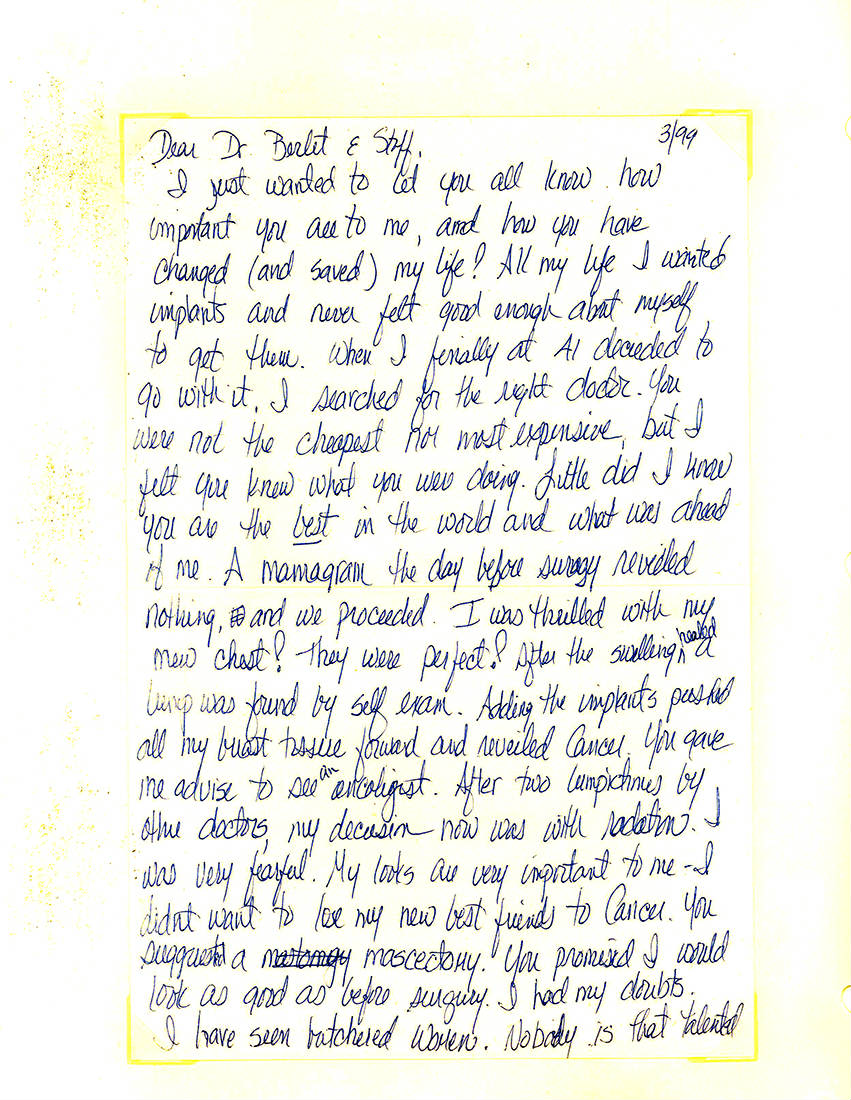 3/99
Dear Dr. Berlet & Staff,
I just wanted to let you all know how
important you are to me, and how you have
changed (and saved) my life! All my life I wanted
implants and never felt good enough about myself
to get them. When I finially at 41 decieded to
go with it, I searched for the right doctor. You
were not the cheapest nor most expensive, but I
felt you knew what you were doing. Little did I know
you are the best in the world and what was ahead
of me. A mamagram the day before surgy reviewed
nothing, and we proceeded. I was thrilled with my
new chest! They were perfect! After the swelling healed a
lump was found by self exam. Adding the implants pushed
all my breast tissue forward and reveiled Cancer. You gave
me advise to see an oncoligist. After two lumpictmies by
other doctors, my decision now was with radation. I
was very fearful. My looks are very important to me - I
didnt want to lose my new best friends to Cancer. You
suggested a mascectomy. You promised I would
look as good as before surgury. I had my doubts.
I have seen butchered women. Nobody is that talented